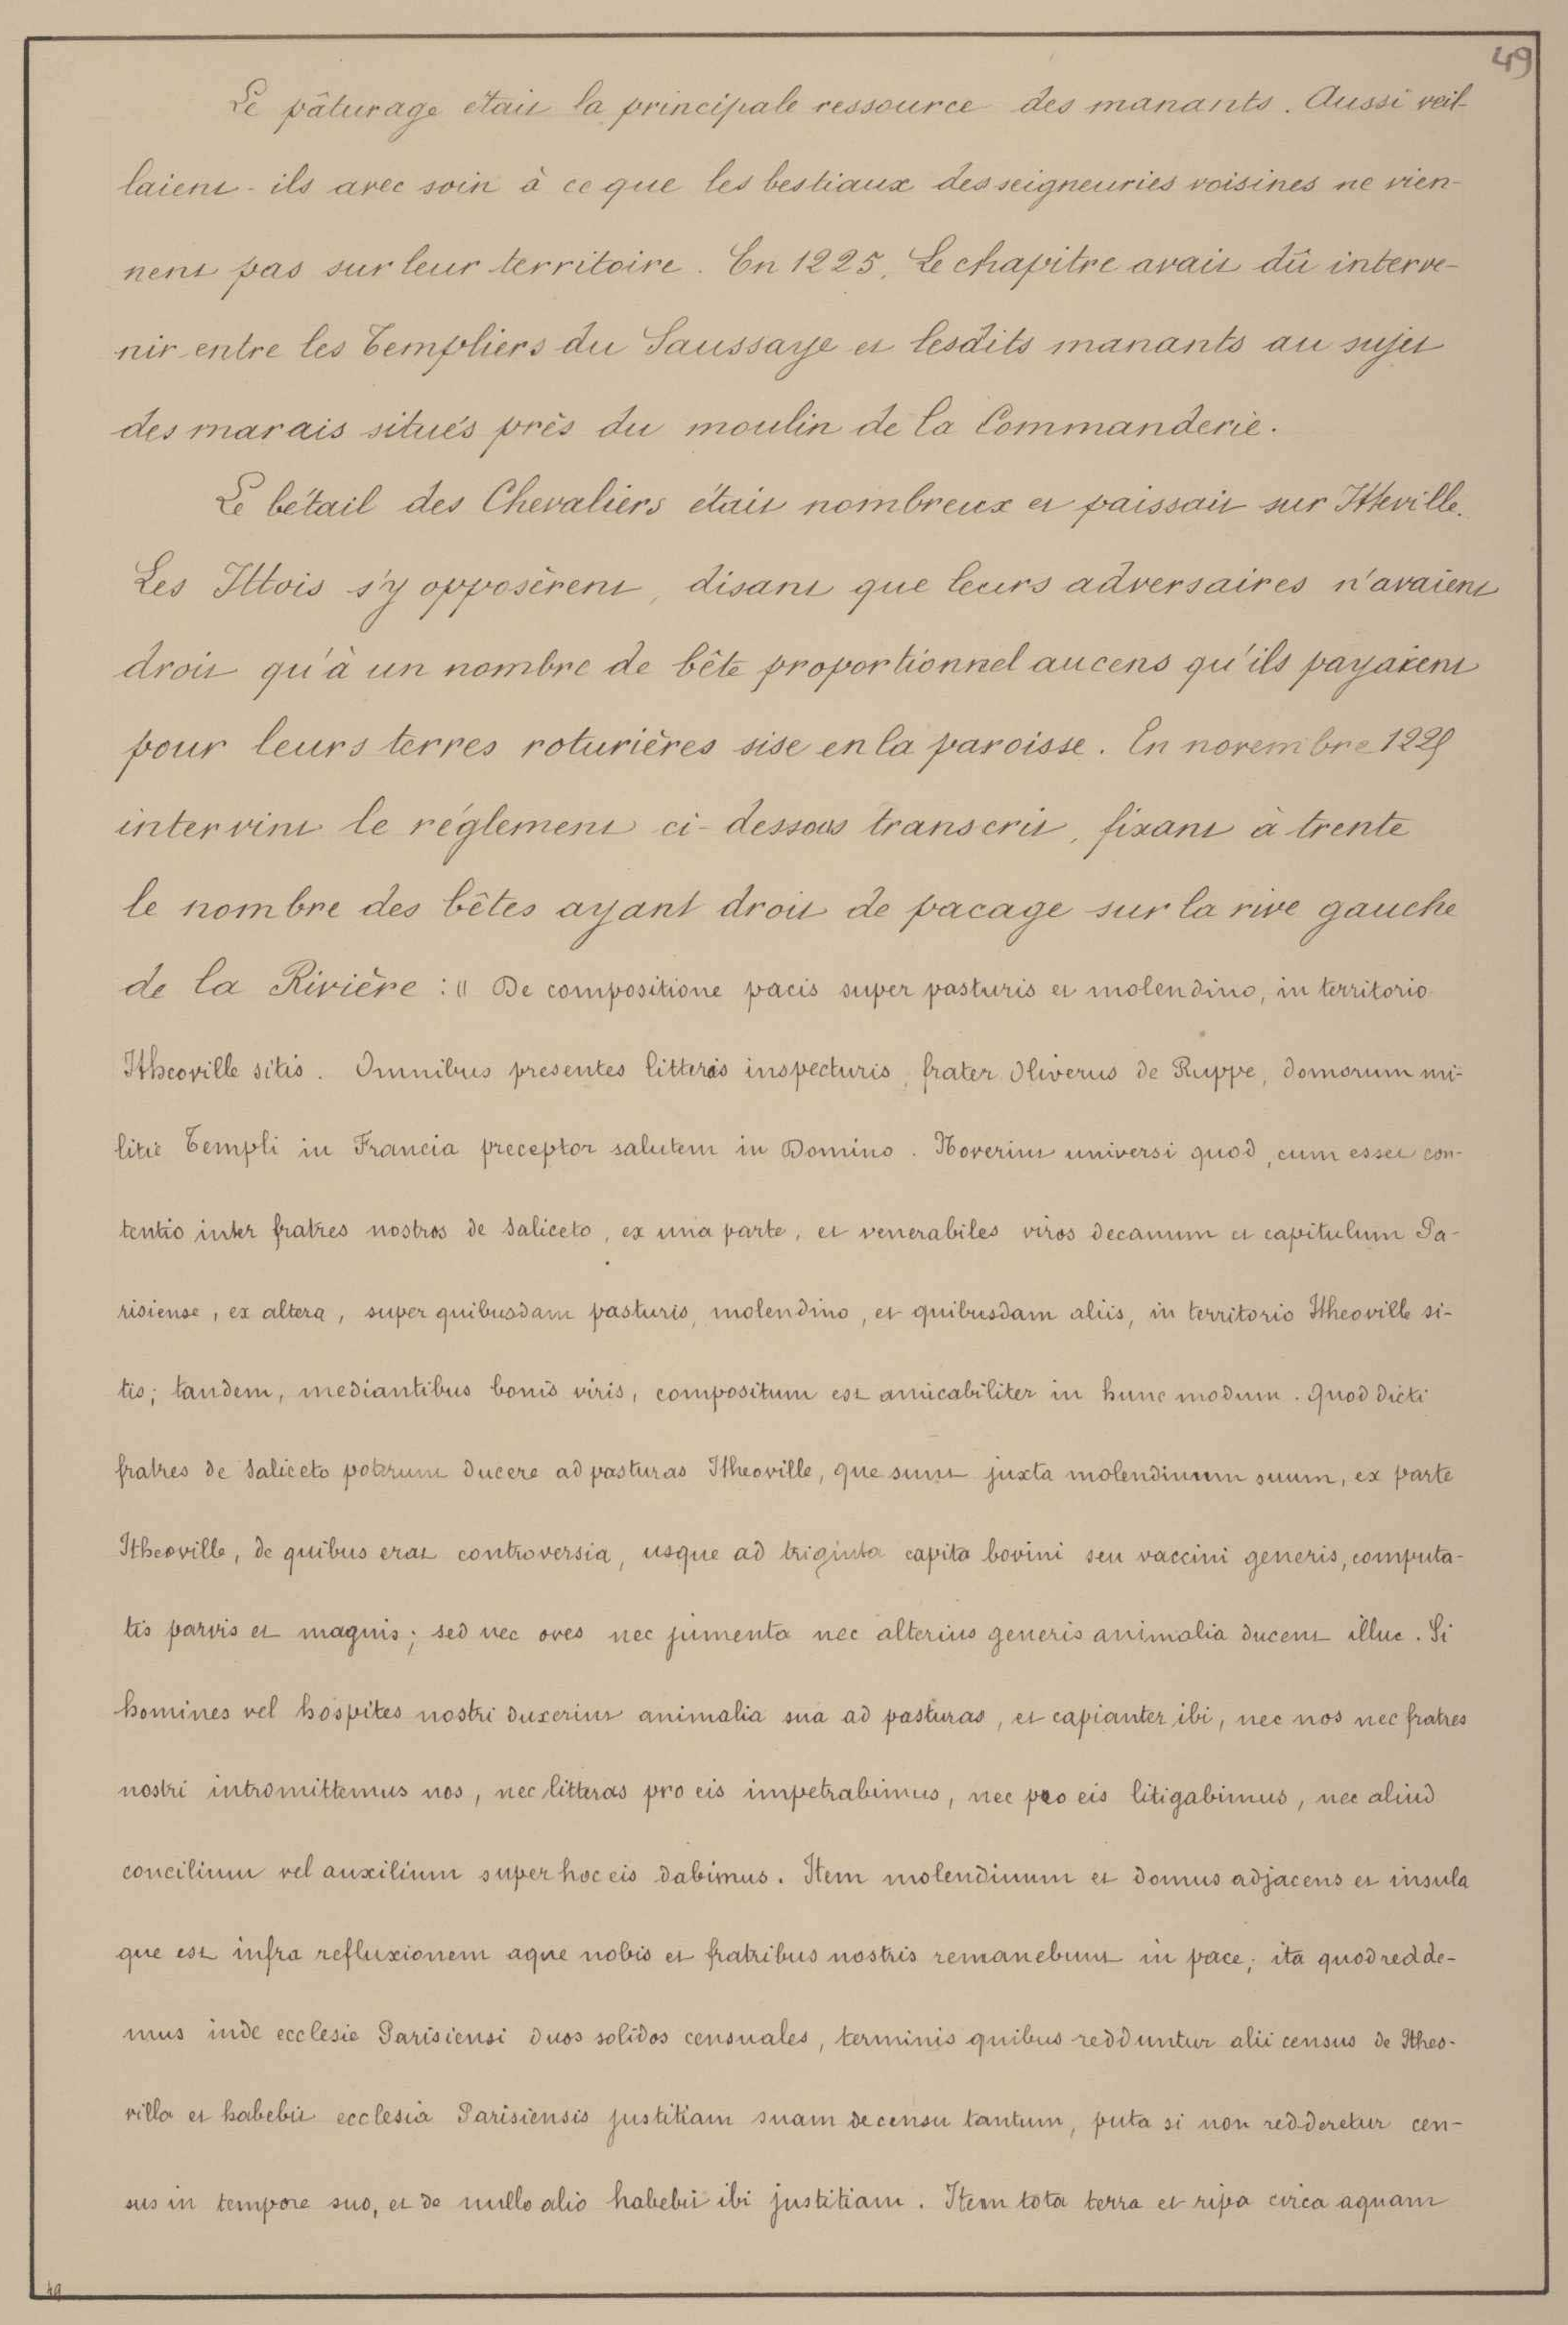 49
Le pâturage était la principale ressource des manants. Aussi veil-
laient-ils avec soin à ce que les bestiaux des seigneuries voisines ne vien-
nent pas sur leur territoire. En 1225, Le chapitre avait dû interve-
nir entre les Templiers du Saussaye et lesdits manants au sujet
des marais situés près du moulin de la Commanderie.
Le bétail des Chevaliers était nombreux et paissait sur Itteville.
Les Ittois s'y opposèrent, disant que leurs adversaires n'avaient
droit qu'à un nombre de bête proportionnel au cens qu'ils payaient
pour leurs terres roturières sise en la paroisse. En novembre 1225
intervint le réglement ci-dessous transcrit, fixant à trente
le nombre des bêtes ayant droit de pacage sur la rive gauche
de la Rivière : " De compositione pacis super pasturis et molendino, in territorio
Itheoville sitis. Omnibus presentes litteris inspecturis, frater Oliverus de Ruppe, domorum mi-
litie Templi in Francia preceptor salutem in Domino. Noverint universi quod, cum esset con-
tentio inter fratres nostros de Saliceto, ex una parte, et venerabiles viros decanum et capitulum Pa-
risiense, ex altera, super quibusdam pasturis, molendino, et quibusdam aliis, in territorio Itheoville si-
tis; tandem, mediantibus bonis viris, compositum est amicabiliter in hunc modum. Quod dicti
fratres de Saliceto poterunt ducere ad pasturas Itheoville, que sunt juxta molendinum suum, ex parte
Itheoville, de quibus erat controversia, usque ad triginta capita bovini seu vaccini generis, computa-
tis parvis et magnis; sed nec oves nec jumenta nec alterius generis animalia ducent illuc. Si
homines vel hospites nostri duxerint animalia sua ad pasturas, et capianter ibi, nec nos nec fratres
nostri intromittemus nos, nec litteras pro eis impetrabimus, nec pro eis litigabimus, nec aliud
concilium vel auxilium super hoc eis dabimus. Item molendinum et domus adjacens et insula
que est infra refluxionem aque nobis et fratribus nostris remanebunt in pace; ita quod redde-
mus inde ecclesie Parisiensi duos solidos censuales, terminis quibus redduntur alii census de Itheo-
villa et habebit ecclesia Parisiensis justitiam suam de censu tantum, puta si non redderetur cen-
sus in tempore suo, et de nullo alio habebit ibi justitiam. Item tota terra et ripa circa aquam
49